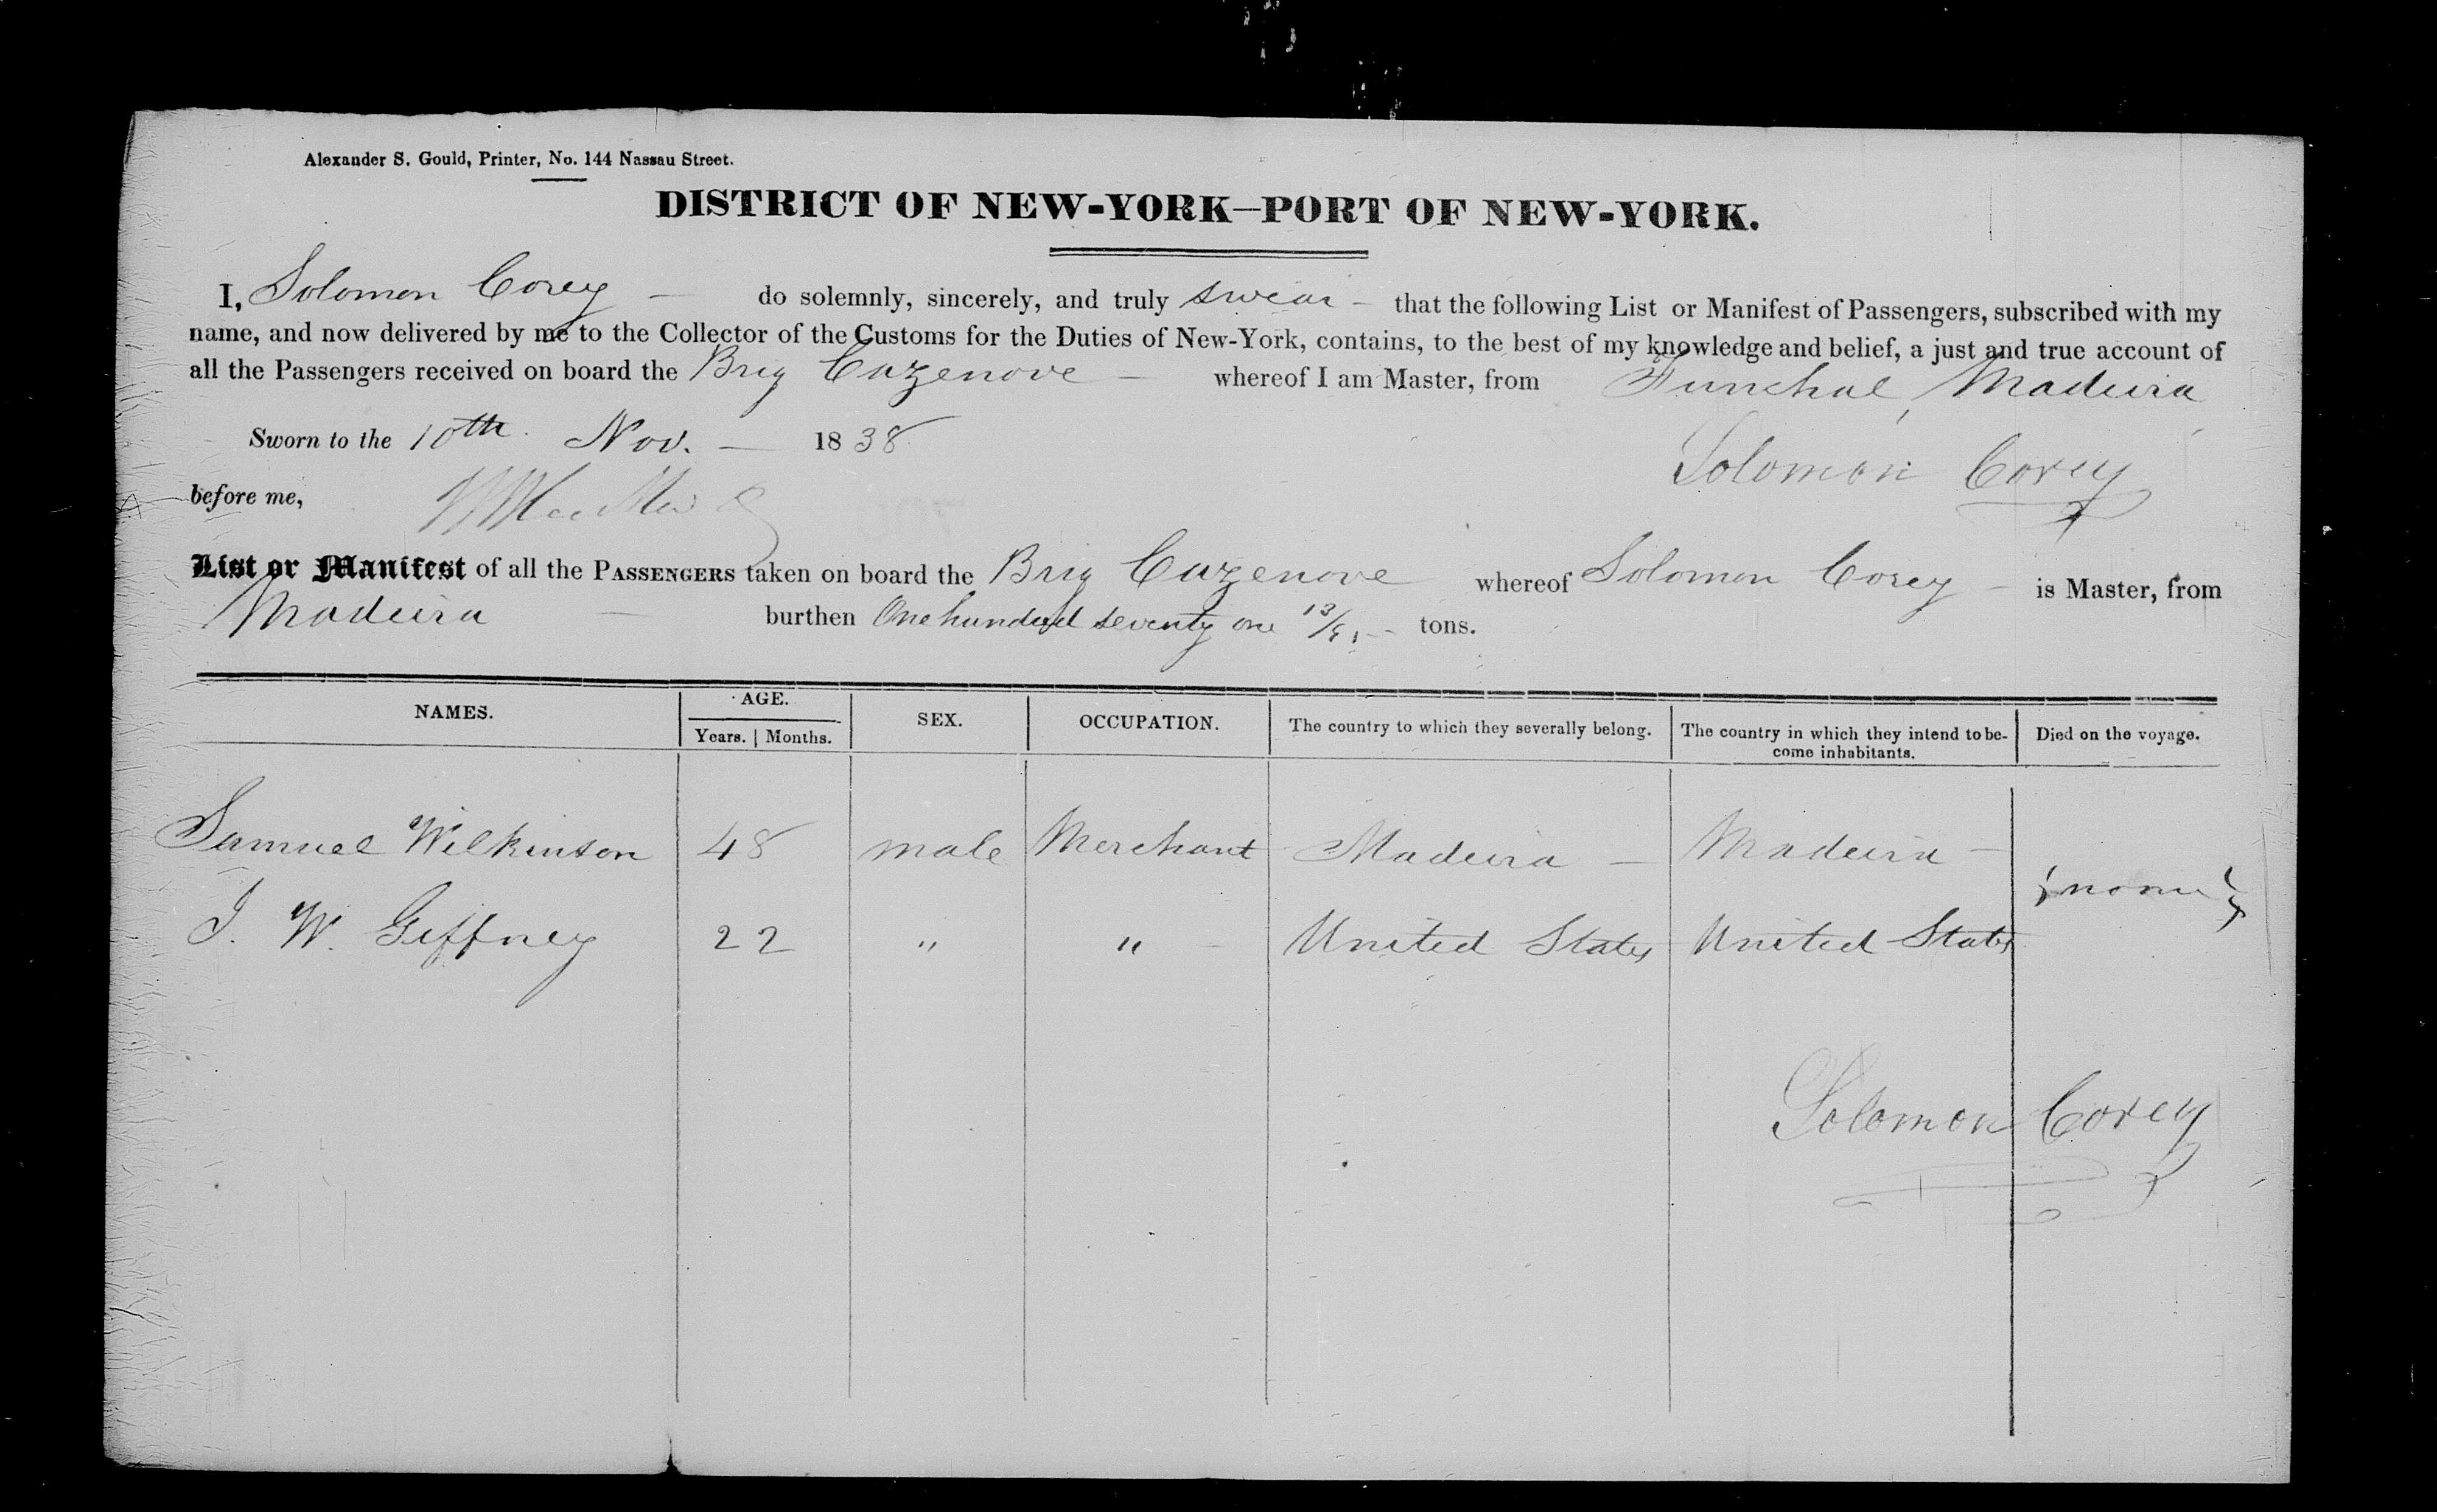 Alexander S. Gould, Printer, No. 144 Nassau Street.
DISTRICT OF NEW-YORK—PORT OF NEW-YORK.
I, Solomon Corey — do solemnly, sincerely, and truly swear – that the following List or Manifest of Passengers, subscribed with my
name, and now delivered by me to the Collector of the Customs for the Duties of New-York, contains, to the best of my knowledge and belief, a just and true account of
all the Passengers received on board the Brig Cazenove — whereof I am Master, from Funchal, Madeira
Sworn to the 10th Nov. — 1838
Solomon Corey
before me,
List or Manifest of all the PASSENGERS taken on board the Brig Cazenove whereof Solomon Corey – is Master, from
Madeira — burthen One hundred seventy one tons.
NAMES. AGE. SEX. OCCUPATION. The country to which they severally belong. The country in which they intend to be-
come inhabitants. Died on the voyage.
Years. | Months.
Samuel Wilkinson 48 male Merchant Madeira — Madeira —
{none}
J. W. Giffney 22 " " United States United States
Solomon Corey